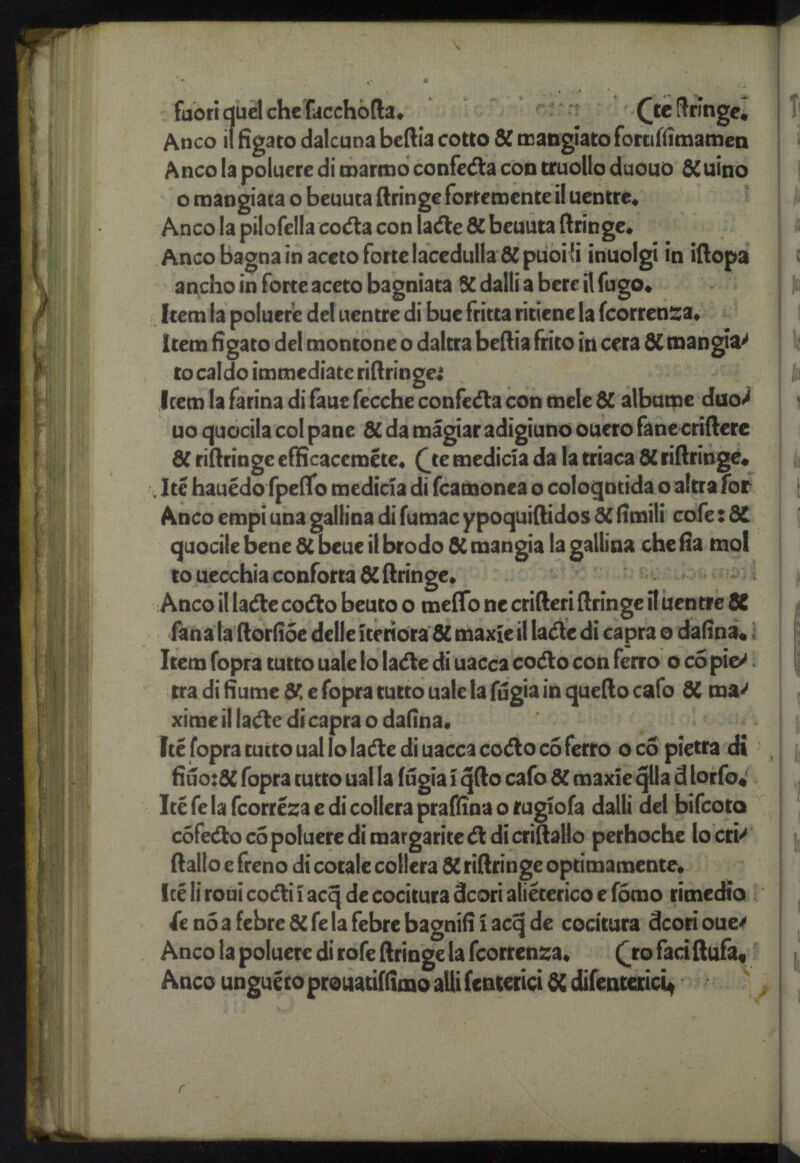 fuori quel che facchoſta. (te ſtringe.
Anco il figato dalcuna beſtia cotto & mangiato fortiſſimamen
Anco la poluere di marmo confecta con truollo duouo & uino
o mangiata o beuuta ſtringe fortemente il uentre.
Anco la piloſella cocta con lacte & beuuta ſtringe.
Anco bagna in aceto forte lacedulla & puoi li inuolgi in iſtopa
ancho in forte aceto bagniata & dalli a bere il ſugo.
Item la poluere del uentre di bue fritta ritiene la ſcorrenza.
Item figato del montone o daltra beſtia frito in cera & mangia/
to caldo immediate riſtringe:
Item la farina di faue ſecche confecta con mele & albume duo/
uo quocila col pane & da mãgiar adigiuno ouero fane criſtere
& riſtringe efficacemẽte. (te medicĩa da la triaca & riſtringe.
Itẽ hauẽdo ſpeſſo medicĩa di ſcamonea o coloqntida o altra for
Anco empi una gallina di ſumac ypoquiſtidos & ſimili coſe: &
quocile bene & beue il brodo & mangia la gallina che ſia mol
to uecchia conforta & ſtringe.
Anco il lacte cocto beuto o meſſo ne criſteri ſtringe il uentre &
ſana la ſtorſiõe delle ĩteriora & maxĩe il lacte di capra o daſina.
Item ſopra tutto uale lo lacte di uacca cocto con ferro o cõ pie/
tra di fiume & e ſopra tutto uale la ſũgia in queſto caſo & ma/
xime il lacte di capra o daſina.
Itẽ ſopra tutto ual lo lacte di uacca cocto cõ ferro o cõ pietra di
fiũo: & ſopra tutto ual la ſũgia ĩ q̃ſto caſo & maxĩe q̃lla d̃ lorſo.
Itẽ ſe la ſcorrẽza e di collera praſſina o rugĩoſa dalli del biſcoto
cõfecto cõ poluere di margarite & di criſtallo perhoche lo cri/
ſtallo e freno di cotale collera & riſtringe optimamente.
Itẽ li roui cocti ĩ acq̃ de cocitura d̃cori aliẽterico e ſõmo rimedio
ſe nõ a febre & ſe la febre bagniſi ĩ acq̃ de cocitura d̃cori oue/
Anco la poluere di roſe ſtringe la ſcorrenza. (ro faci ſtufa.
Anco unguẽto prouatiſſimo alli ſenterici & diſenterici.